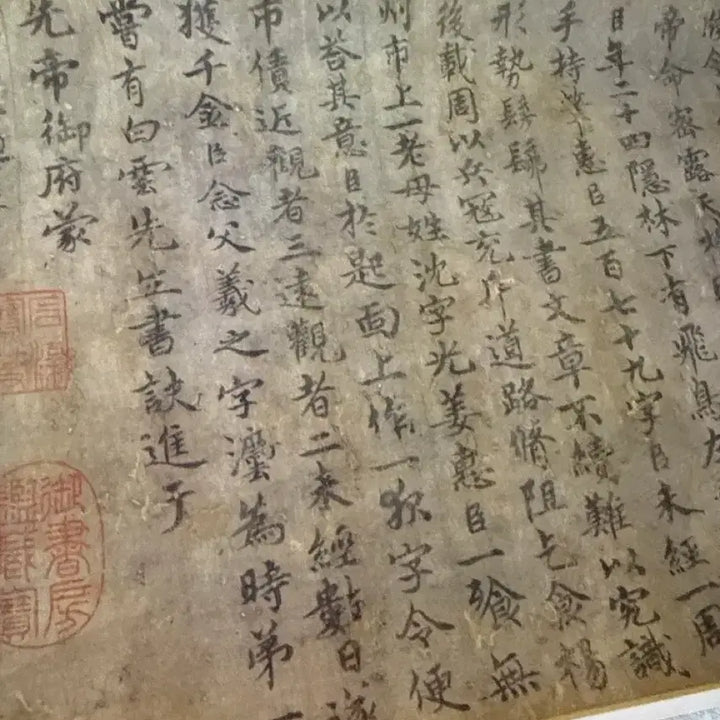 帝命密露天機
臣年二十四隱林下有飛鳥左
手持筆惠臣五百七十九字臣未經一周
形勢髣髴其書文章不續難以究識
後載周以兵寇充斥道路脩阻乞食楊
州市上一老母姓沈字光姜惠臣一飡無
以荅其意臣於匙面上作一夜字令便
市債近觀者三遠觀者二未經數日遂
獲千金臣念父羲之字灋為時第一
嘗有白雲先生書訣進于
先帝御府蒙
御書房
鑑藏寶